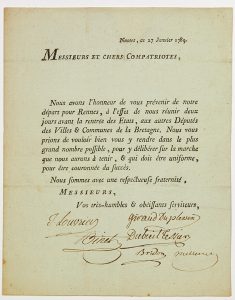 Nantes, ce 27 Janvier 1789.
MESSIEURS ET CHERS COMPATRIOTES,
Nous avons l'honneur de vous prévenir de notre
départ pour Rennes, à l'effet de nous réunir deux
jours avant la rentrée des Etats, aux autres Députés
des Villes & Communes de la Bretagne. Nous vous
prions de vouloir bien vous y rendre dans le plus
grand nombre possible, pour y délibérer sur la marche
que nous aurons à tenir, & qui doit être uniforme,
pour être couronnée du succès.
Nous sommes avec une respectueuse fraternité,
MESSIEURS,
Vos très-humbles & obéissans serviteurs,
giraud duplessix